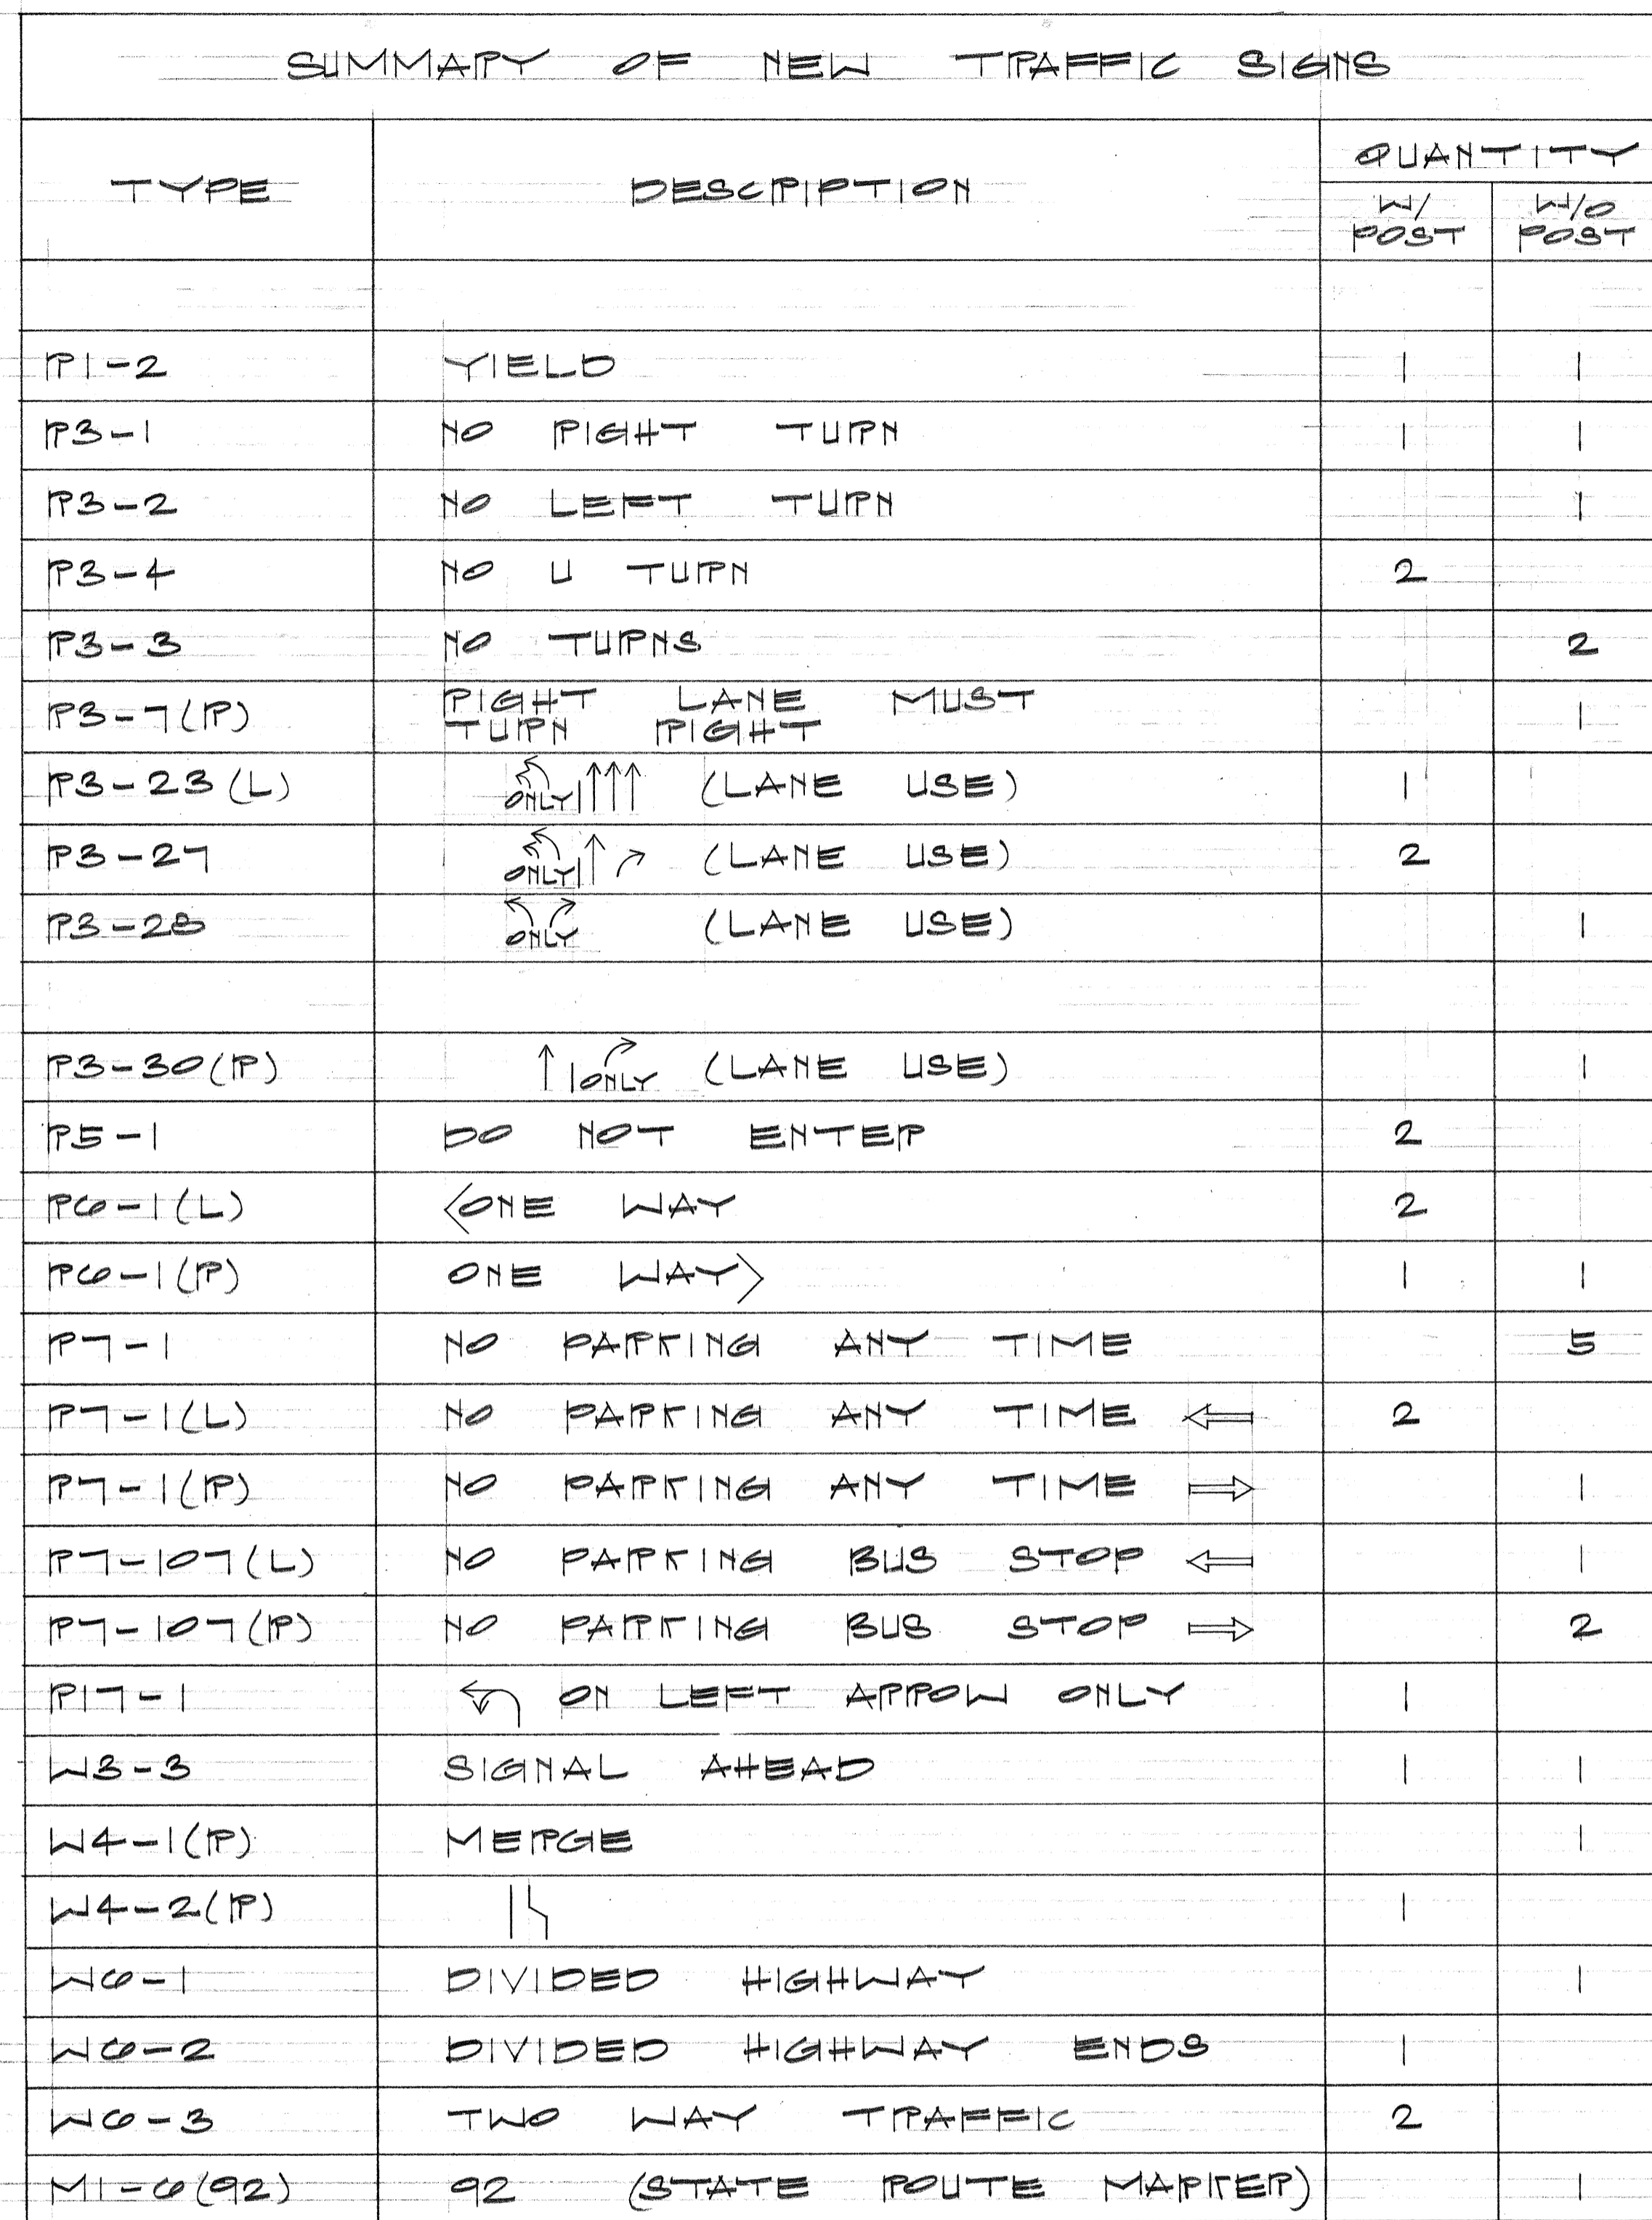 SUMMARY OF NEW TRAFFIC SIGNS
TYPE DESCRIPTION QUANTITY
W/ POST W/O POST
R1-2 YIELD 1 1
R3-1 NO RIGHT TURN 1 1
R3-2 NO LEFT TURN 1
R3-4 NO U TURN 2
R3-3 NO TURNS 2
R3-7(R) RIGHT LANE MUST TURN RIGHT 1
R3-23(L) ONLY (LANE USE) 1
R3-27 ONLY (LANE USE) 2
R3-28 ONLY (LANE USE) 1
R3-30(R) ONLY (LANE USE) 1
R5-1 DO NOT ENTER 2
R6-1(L) <ONE WAY 2
R6-1(R) ONE WAY> 1 1
R7-1 NO PARKING ANY TIME 5
R7-1(L) NO PARKING ANY TIME ⇐ 2
R7-1(R) NO PARKING ANY TIME ⇒ 1
R7-107(L) NO PARKING BUS STOP ⇐ 1
R7-107(R) NO PARKING BUS STOP ⇒ 2
R17-1 ON LEFT ARROW ONLY 1
W3-3 SIGNAL AHEAD 1 1
W4-1(R) MERGE 1
W4-2(R) 1
W6-1 DIVIDED HIGHWAY 1
W6-2 DIVIDED HIGHWAY ENDS 1
W6-3 TWO WAY TRAFFIC 2
M1-6(92) 92 (STATE ROUTE MARKER) 1